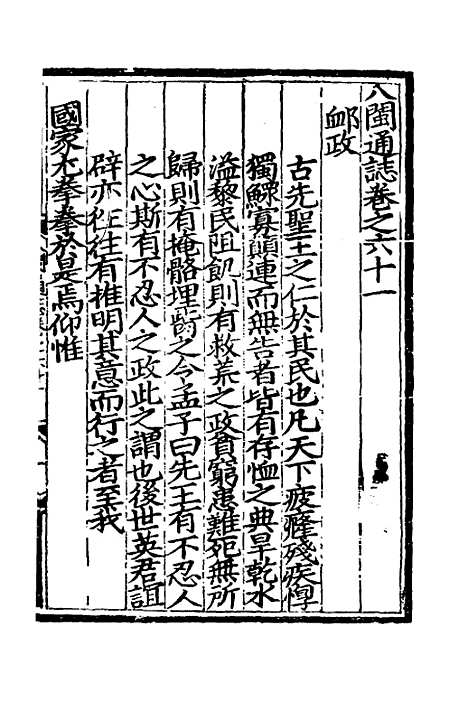 八閩通誌卷之六十一
卹政
古先聖王之仁於其民也凡天下疲癃殘疾惸
獨鰥寡顛連而無告者皆有存恤之典旱乾水
溢黎民阻飢則有救荒之政貧窮患難死無所
歸則有掩骼埋胔之令孟子曰先王有不忍人
之心斯有不忍人之政此之謂也後世英君誼
辟亦往往有推明其意而行之者至我
國家尤拳拳於是焉仰惟